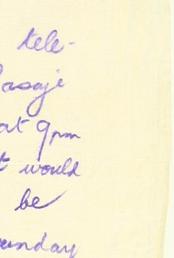 tele-
Pasaje
at 9pm
t would
be
unday